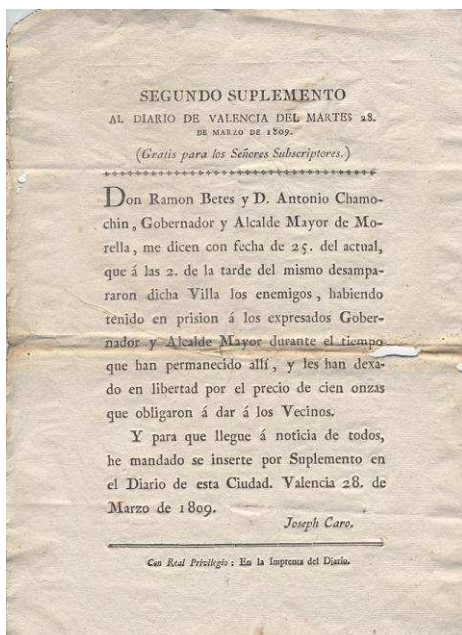 SEGUNDO SUPLEMENTO
AL DIARIO DE VALENCIA DEL MARTES 28.
DE MARZO DE 1809.
(Gratis para los Señores Subscriptores.)
Don Ramon Betes y D. Antonio Chamo-
chin, Gobernador y Alcalde Mayor de Mo-
rella, me dicen con fecha de 25. del actual,
que á las 2. de la tarde del mismo desampa-
raron dicha Villa los enemigos, habiendo
tenido en prision á los expresados Gober-
nador y Alcalde Mayor durante el tiempo
que han permanecido allí, y les han dexa-
do en libertad por el precio de cien onzas
que obligaron á dar á los Vecinos.
Y para que llegue á noticia de todos,
he mandado se inserte por Suplemento en
el Diario de esta Ciudad. Valencia 28. de
Marzo de 1809.
Joseph Caro.
Con Real Privilegio: En la Imprenta del Diario.